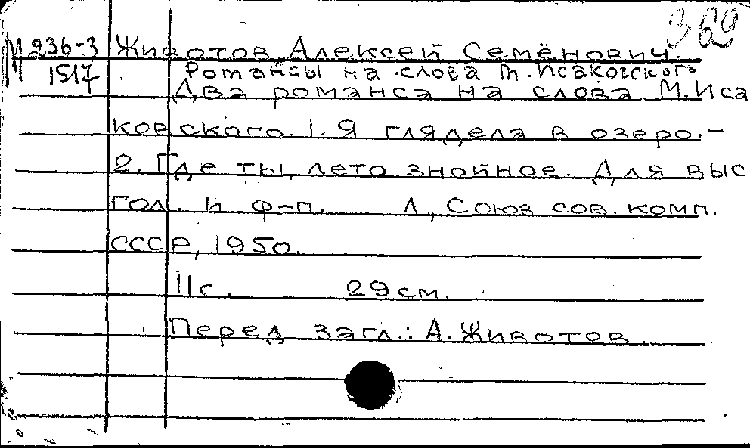 369
М 236-3 Животов Алексей Семёнович
1517 Романсы на слова М. Исаковского
Два романса на слова М.Иса
ковского. 1. Я глядела в озеро.-
2. Где ты, лето знойное. Для выс
гол. и ф-п. Л., Союз сов. комп.
СССР, 1950.
11с. 29см.
Перед загл.: А. Животов